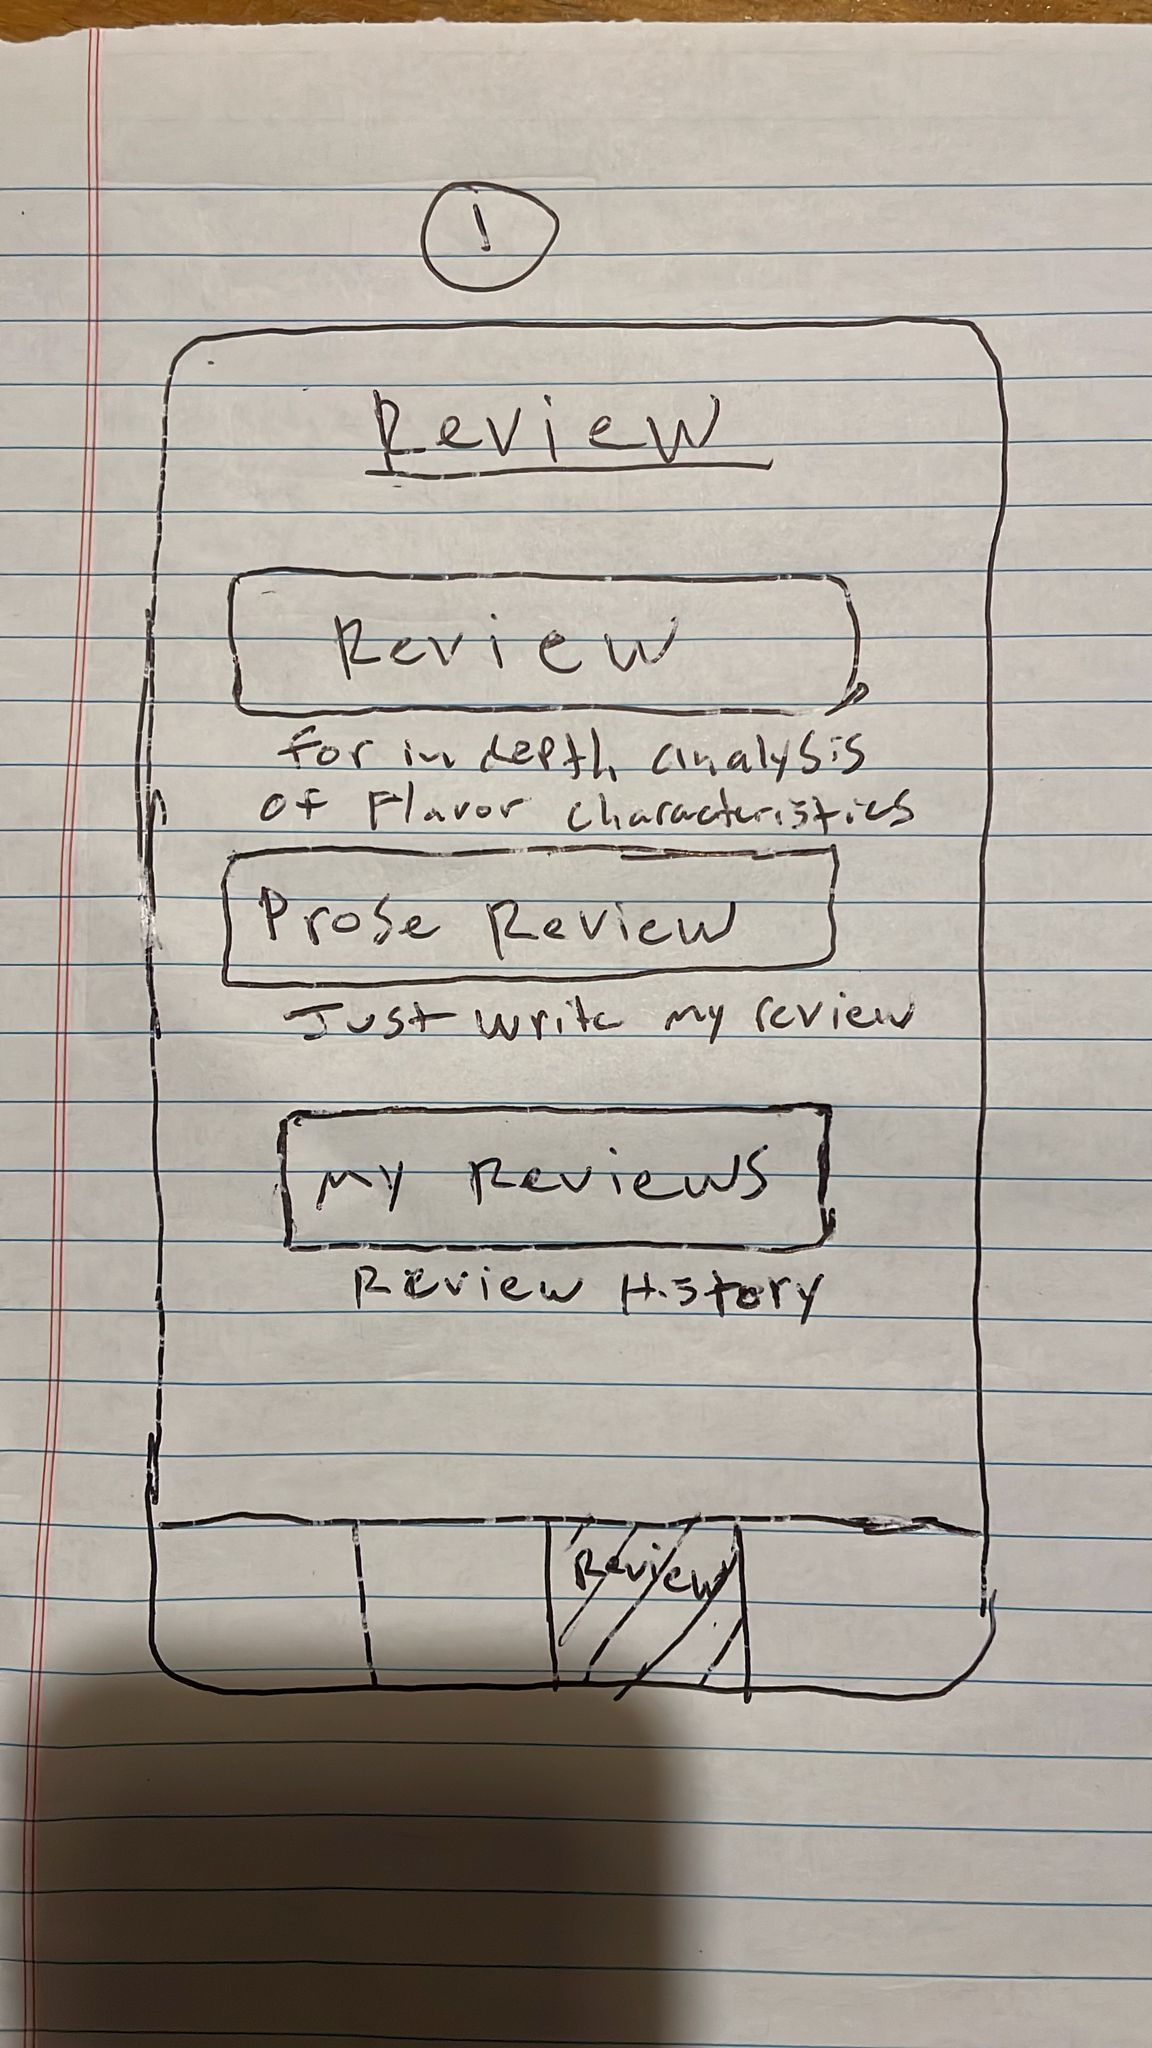 1
Review
Review
for in depth analysis
of Flavor characteristics
Prose Review
Just write my review
My Reviews
Review History
Review